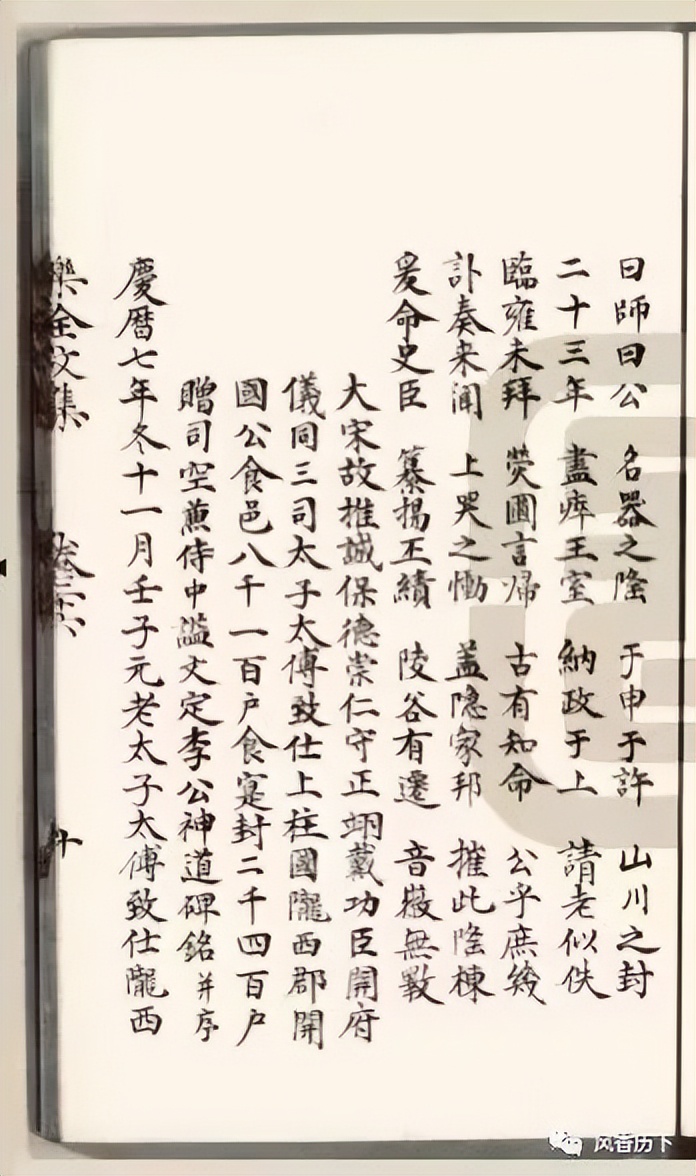 曰師曰公 名器之隆 于申于許 山川之封
二十三年 盡瘁王室 納政于上 請老似佚
臨雍未拜 熒圃言歸 古有知命 公乎庶幾
訃奏来聞 上哭之慟 蓋隠家邦 摧此隆棟
爰命史臣 纂揚丕績 陵谷有遷 音徽無斁
大宋故推誠保德崇仁守正翊戴功臣開府
儀同三司太子太傅致仕上柱國隴西郡開
國公食邑八千一百户食寔封二千四百户
贈司空蕳侍中謚文定李公神道碑銘并序
慶曆七年冬十一月壬子元老太子太傅致仕隴西
樂全文集 卷三十六 十
风香历下